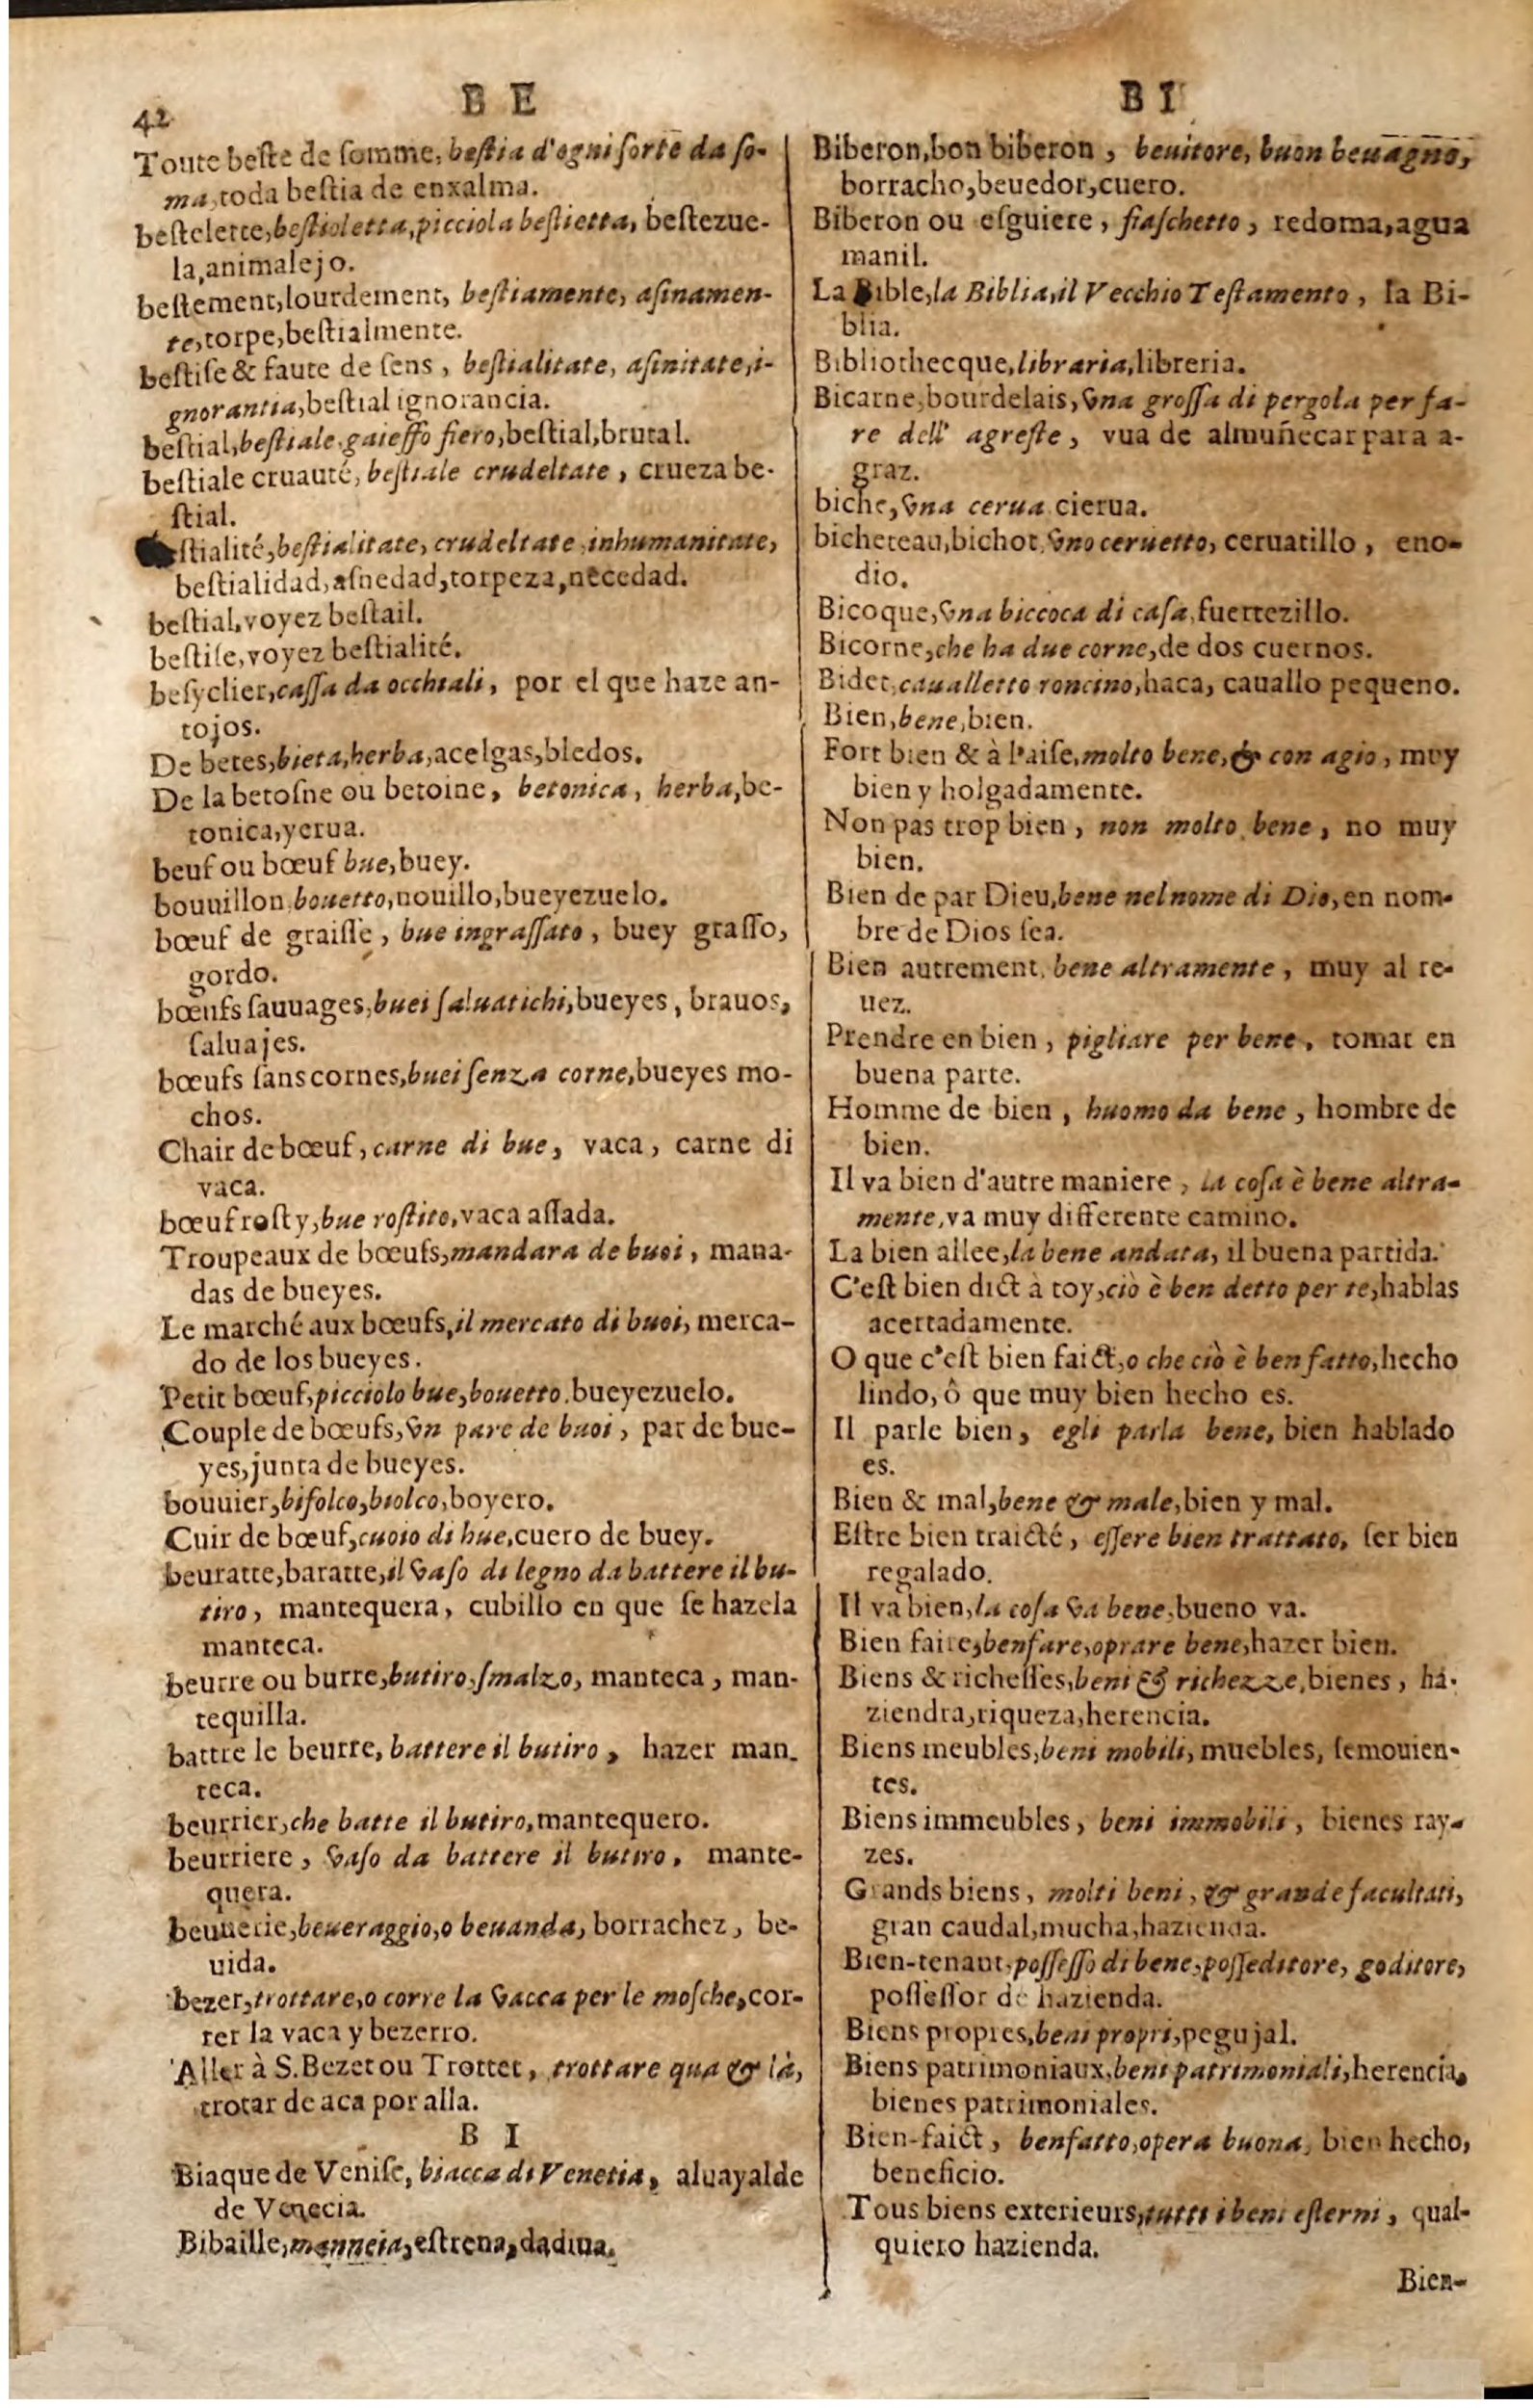 42
B E
Toute beſte de ſomme, beſtia d'ogni ſorte da ſo-
ma, toda beſtia de enxalma.
beſtelette, beſtioletta, picciola beſtietta, beſtezue-
la, animalejo.
beſtement, lourdement, beſtiamente, aſinamen-
te, torpe, beſtialmente.
beſtiſe & faute de ſens, beſtialitate, aſinitate, i-
gnorantia, beſtial ignorancia.
beſtial, beſtiale, gaieſſo fiero, beſtial, brutal.
beſtiale cruauté, beſtiale crudeltate, crueza be-
ſtial.
ſtialité, beſtialitate, crudeltate, inhumanitate,
beſtialidad, aſnedad, torpeza, necedad.
beſtial, voyez beſtail.
beſtiſe, voyez beſtialité.
beſyclier, caſſa da occhiali, por el que haze an-
tojos.
De betes, bieta, herba, acelgas, bledos.
De la betoſne ou betoine, betonica, herba, be-
tonica, yerua.
beuf ou bœuf bue, buey.
bouuillon, bouetto, nouillo, bueyezuelo.
bœuf de graiſſe, bue ingraſſato, buey graſſo,
gordo.
bœufs ſauuages, buei ſaluatichi, bueyes, brauos,
ſaluajes.
bœufs ſans cornes, buei ſenza corne, bueyes mo-
chos.
Chair de bœuf, carne di bue, vaca, carne di
vaca.
bœuf roſty, bue roſtito, vaca aſſada.
Troupeaux de bœufs, mandara de buoi, mana-
das de bueyes.
Le marché aux bœufs, il mercato di buoi, merca-
do de los bueyes.
Petit bœuf, picciolo bue, bouetto, bueyezuelo.
Couple de bœufs, vn pare de buoi, par de bue-
yes, junta de bueyes.
bouuier, bifolco, biolco, boyero.
Cuir de bœuf, cuoio di hue, cuero de buey.
beuratte, baratte, il vaſo di legno da battere il bu-
tiro, mantequera, cubillo en que ſe haze la
manteca.
beurre ou burre, butiro, ſmalzo, manteca, man-
tequilla.
battre le beurre, battere il butiro, hazer man-
teca.
beurrier, che batte il butiro, mantequero.
beurriere, vaſo da battere il butiro, mante-
quera.
beuuerie, beueraggio, o beuanda, borrachez, be-
uida.
bezer, trottare, o corre la vacca per le moſche, cor-
rer la vaca y bezerro.
Aller à S. Bezet ou Trottet, trottare qua & là,
trotar de aca por alla.
B I
Biaque de Veniſe, biacca di Venetia, aluayalde
de Venecia.
Bibaille, manneia, eſtrena, dadiua.
B I
Biberon, bon biberon, beuitore, buon beuagno,
borracho, beuedor, cuero.
Biberon ou eſguiere, fiaſchetto, redoma, agua
manil.
La Bible, la Biblia, il Vecchio Teſtamento, la Bi-
blia.
Bibliothecque, libraria, libreria.
Bicarne, bourdelais, vna groſſa di pergola per fa-
re dell' agreſte, vua de almuñecar para a-
graz.
biche, vna cerua cierua.
bicheteau, bichot, vno ceruetto, ceruatillo, eno-
dio.
Bicoque, vna biccoca di caſa, fuertezillo.
Bicorne, che ha due corne, de dos cuernos.
Bidet, caualletto roncino, haca, cauallo pequeno.
Bien, bene, bien.
Fort bien & à l'aiſe, molto bene, & con agio, muy
bien y holgadamente.
Non pas trop bien, non molto bene, no muy
bien.
Bien de par Dieu, bene nel nome di Dio, en nom-
bre de Dios ſea.
Bien autrement, bene altramente, muy al re-
uez.
Prendre en bien, pigliare per bene, tomar en
buena parte.
Homme de bien, huomo da bene, hombre de
bien.
Il va bien d'autre maniere, la coſa è bene altra-
mente, va muy differente camino.
La bien allee, la bene andata, il buena partida.
C'eſt bien dict à toy, ciò è ben detto per te, hablas
acertadamente.
O que c'eſt bien faict, o che ciò è ben fatto, hecho
lindo, ô que muy bien hecho es.
Il parle bien, egli parla bene, bien hablado
es.
Bien & mal, bene & male, bien y mal.
Eſtre bien traicté, eſſere bien trattato, ſer bien
regalado.
Il va bien, la coſa va bene, bueno va.
Bien faire, benfare, oprare bene, hazer bien.
Biens & richeſſes, beni & richezze, bienes, ha-
ziendra, riqueza, herencia.
Biens meubles, beni mobili, muebles, ſemouien-
tes.
Biens immeubles, beni immobili, bienes ray-
zes.
Grands biens, molti beni, & grande facultati,
gran caudal, mucha, hazienda.
Bien-tenant, poſſeſſo di bene, poſſeditore, goditore,
poſſeſſor de hazienda.
Biens propres, beni propri, pegujal.
Biens patrimoniaux, beni patrimoniali, herencia,
bienes patrimoniales.
Bien-faict, benfatto, opera buona, bien hecho,
beneficio.
Tous biens exterieurs, tutti i beni eſterni, qual-
quiero hazienda.
Bien-